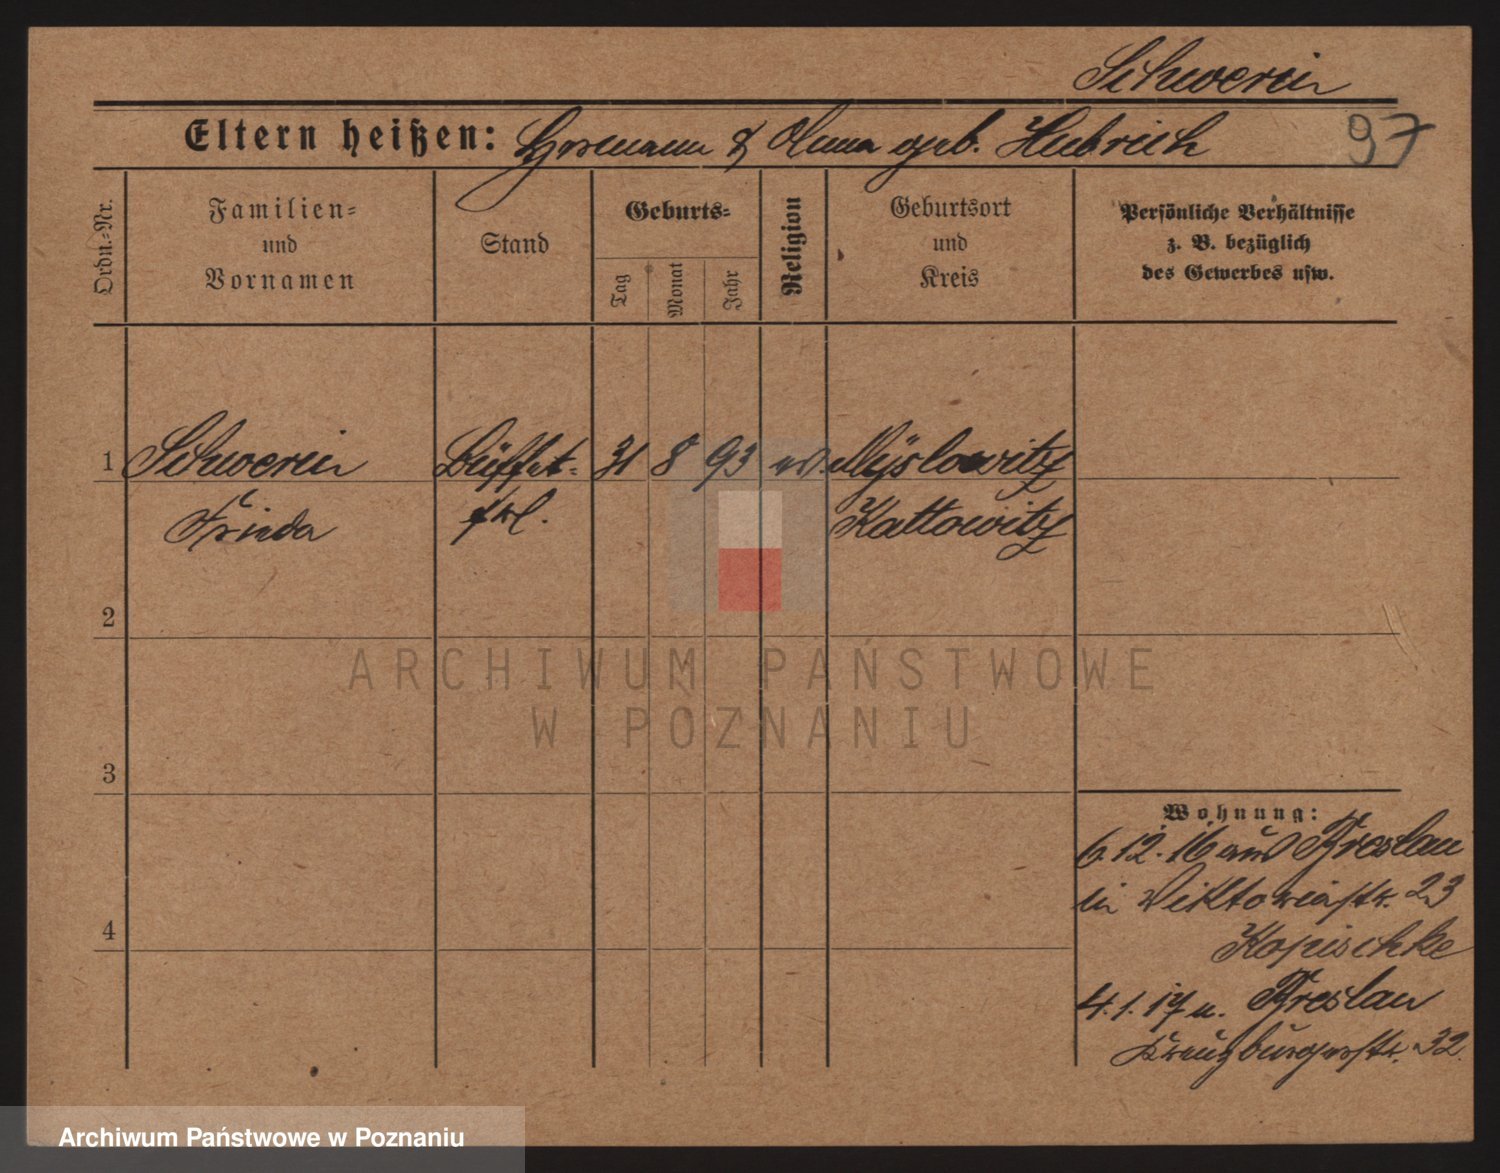 Schwerin
Eltern heißen: Hermann & Anna geb. Hubrich
97
Ordn.-Nr.
Familien- und Vornamen
Stand
Geburts-
Tag
Monat
Jahr
Religion
Geburtsort und Kreis
Persönliche Verhältnisse
z. B. bezüglich
des Gewerbes usw.
1 Schwerin Büffet- 31 8 93 ev. Myslowitz
Frieda frl. Kattowitz
2
3
4
Wohnung:
6.12.16 aus Breslau
in Viktoriastr. 23
Kopischke
4.1.17 n. Breslau
Kreuzburgerstr. 32.
ARCHIWUM PAŃSTWOWE
W POZNANIU
Archiwum Państwowe w Poznaniu